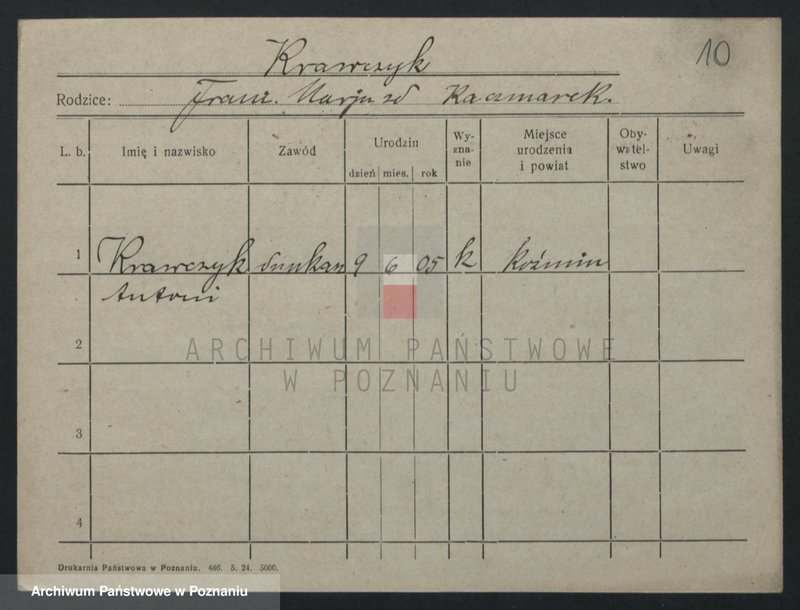 10
Krawczyk
Rodzice: Franz. Marja zd Kaczmarek.
L. b. Imię i nazwisko Zawód Urodzin dzień mies. rok Wy-zna-nie Miejsce urodzenia i powiat Oby-watel-stwo Uwagi
1 Krawczyk drukarz 9 6 05 k Koźmin
Antoni
2
ARCHIWUM PAŃSTWOWE
W POZNANIU
3
4
Drukarnia Państwowa w Poznaniu. 486. 5. 24. 5000.
Archiwum Państwowe w Poznaniu